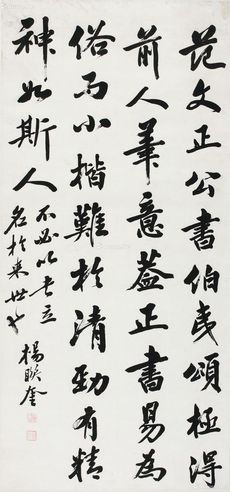 范文正公書伯夷頌極得
前人筆意蓋正書易為
俗而小楷難於清勁有精
神如斯人
不必以書立
名於來世也
楊